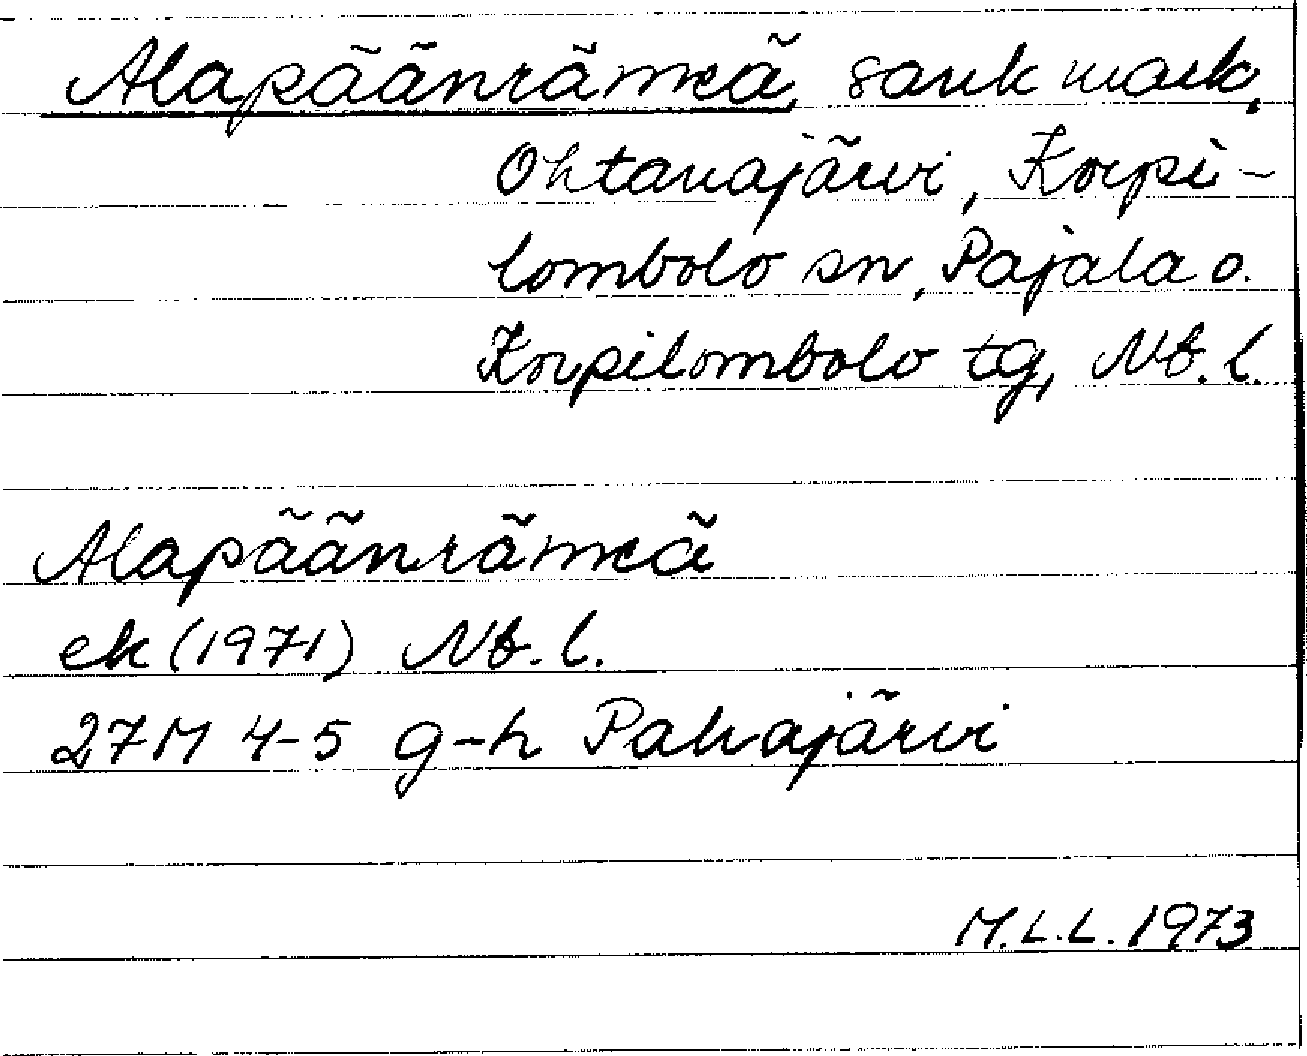 Alapäänrämeä, sank mark,
Ohtanajärvi, Korpi-
lombolo sn, Pajala o.
Korpilombolo tg, Nb. l.
Alapäänrämeä
ek (1971) Nb. l.
27M 4-5 g-h Pahajärvi
M.L.L. 1973